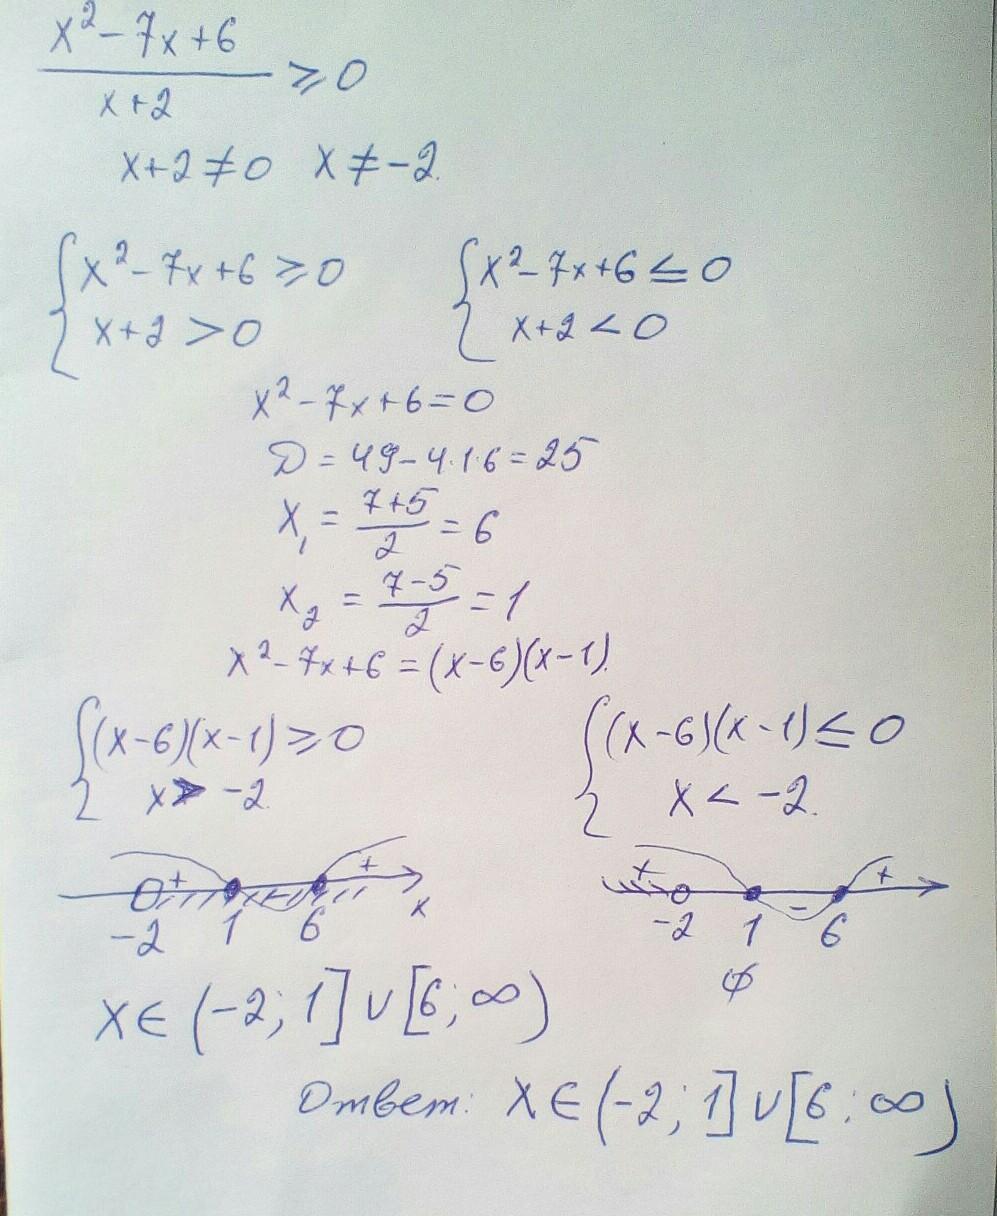 x²-7x+6
x+2
≥0
x+2≠0 x≠-2.
{x²-7x+6≥0 {x²-7x+6≤0
x+2>0 x+2<0
x²-7x+6=0
D=49-4·1·6=25
x₁=7+5/2=6
x₂=7-5/2=1
x²-7x+6=(x-6)(x-1).
{(x-6)(x-1)≥0 {(x-6)(x-1)≤0
x>-2 x<-2.
+ - + + - +
-2 1 6 x -2 1 6
x∈(-2;1]∪[6;∞) ∅
Ответ: x∈(-2;1]∪[6;∞)